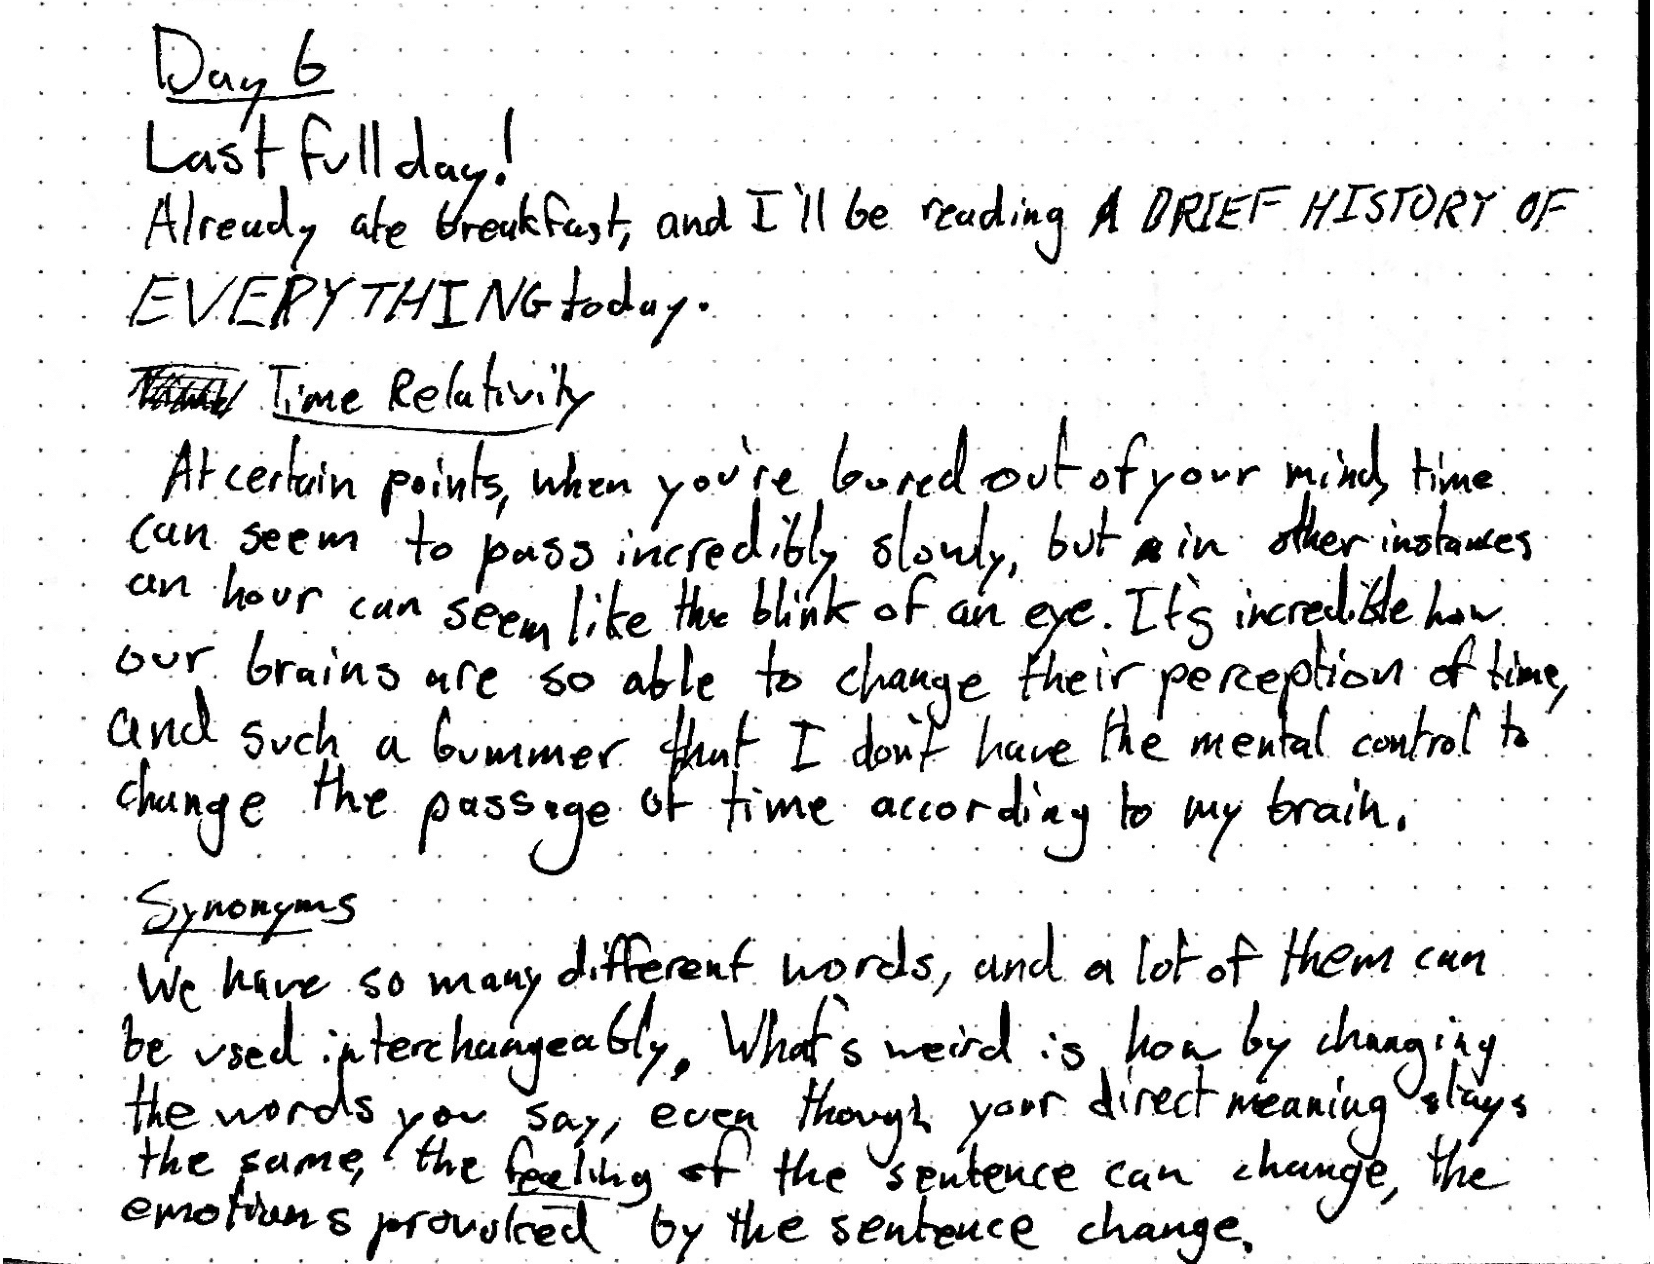 Day 6
Last full day!
Already ate breakfast, and I'll be reading A BRIEF HISTORY OF
EVERYTHING today.
Time Relativity
At certain points, when you're bored out of your mind, time
can seem to pass incredibly slowly, but in other instances
an hour can seem like the blink of an eye. It's incredible how
our brains are so able to change their perception of time,
and such a bummer that I don't have the mental control to
change the passage of time according to my brain.
Synonyms
We have so many different words, and a lot of them can
be used interchangeably. What's weird is how by changing
the words you say, even though your direct meaning stays
the same, the feeling of the sentence can change, the
emotions provoked by the sentence change.